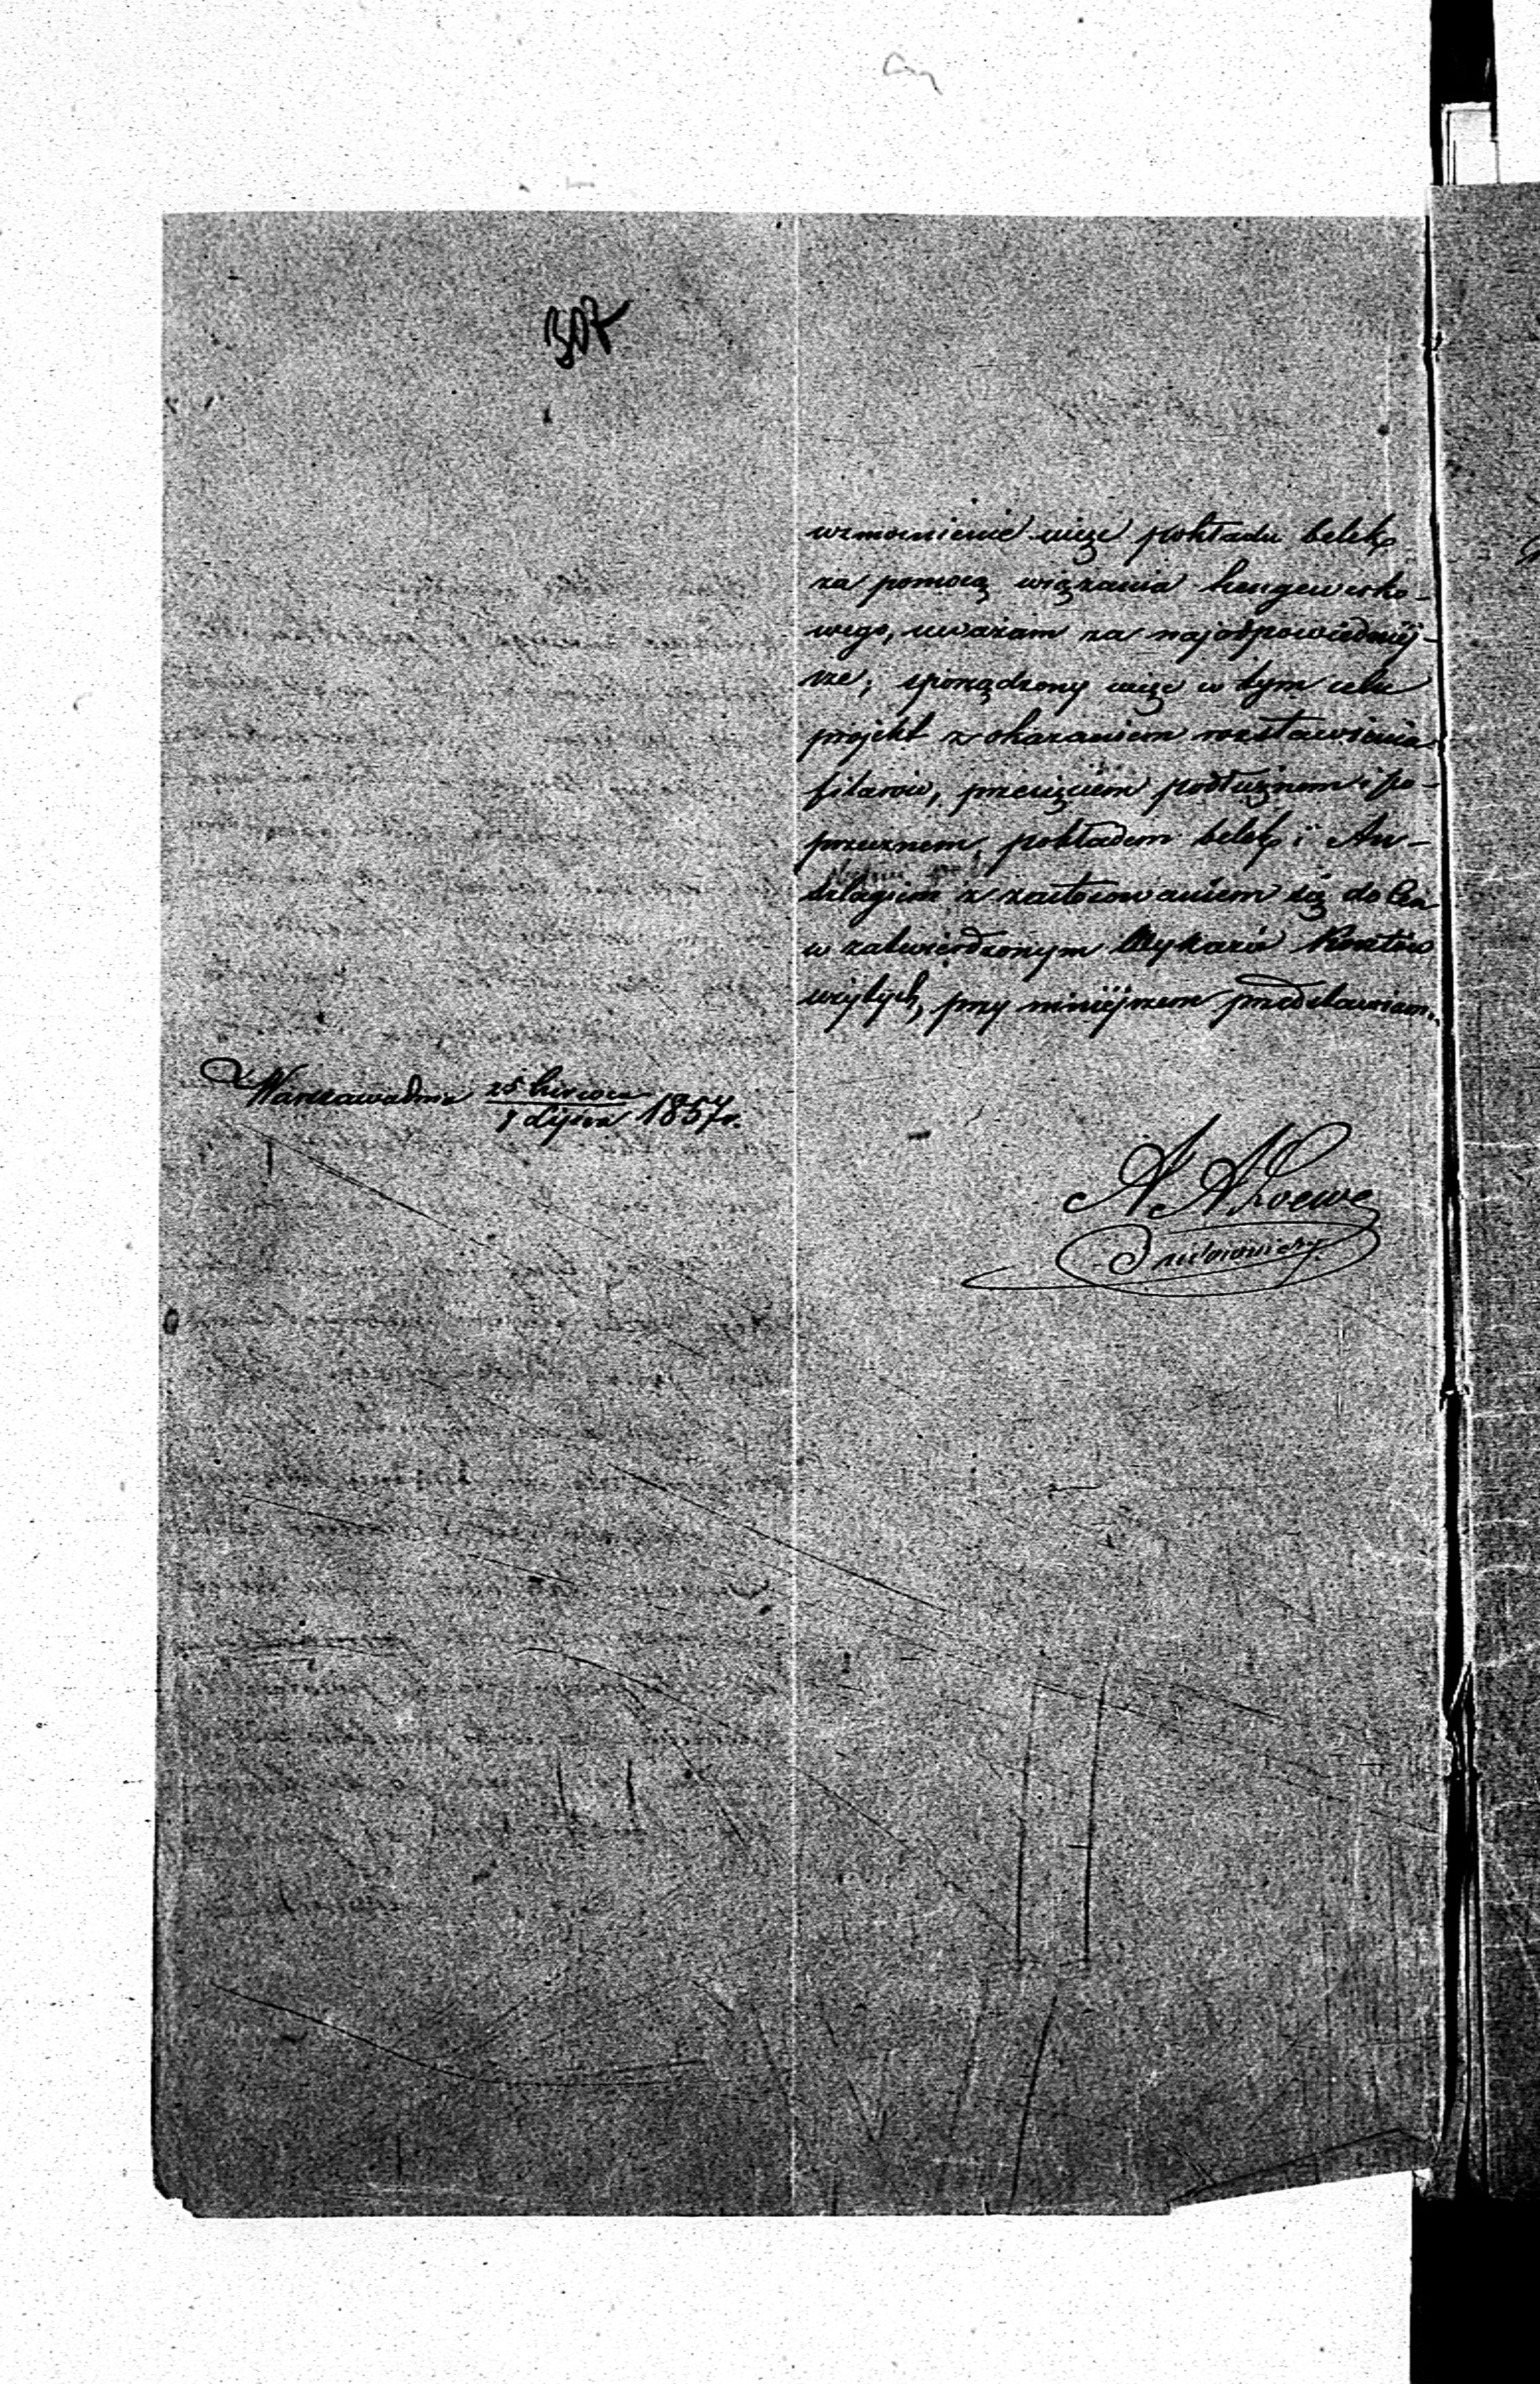 307
wzmocnienie więc pokładu belek
za pomocą wiązania hengewerko-
wego, uważam za najodpowiedniej-
sze; sporządzony więc w tym celu
projekt z okazaniem rozstawienia
filarów, przecięciem podłużnem i po-
przecznem pokładem belek i An-
szlagiem z zastosowaniem się do Cen
w zatwierdzonym Wykazie Kosztów
użytych, przy niniejszem przedstawiam.
Warszawa dnia 25 Czerwca
7 Lipca 1857 r.
A. A. Loewe
Budowniczy